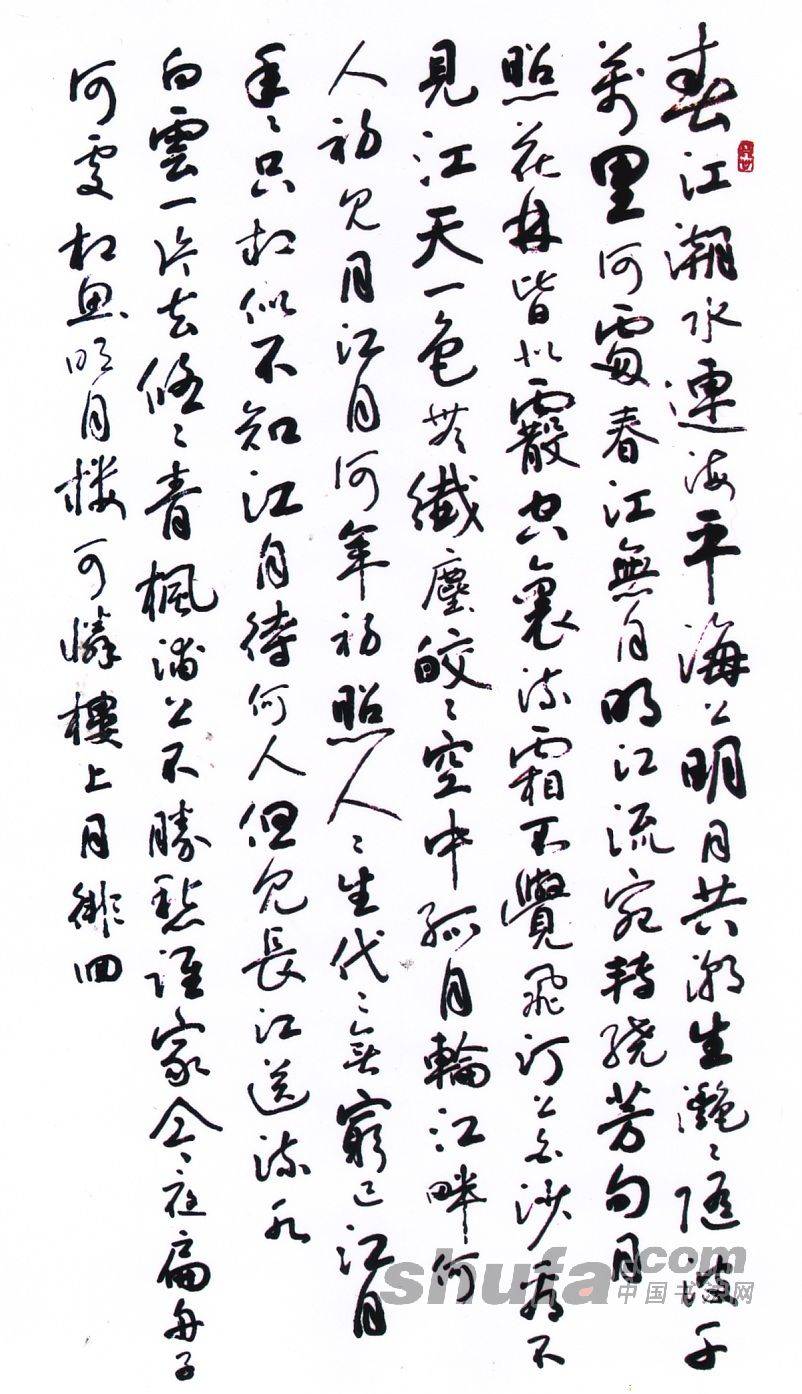 春江潮水連海平海上明月共潮生灧〻隨波千
萬里何處春江無月明江流宛轉繞芳甸月
照花林皆似霰空裏流霜不覺飛汀上白沙看不
見江天一色無纖塵皎〻空中孤月輪江畔何
人初見月江月何年初照人〻生代〻無窮已江月
年〻只相似不知江月待何人但見長江送流水
白雲一片去悠〻青楓浦上不勝愁誰家今夜扁舟子
何處相思明月楼可憐樓上月徘回
shufa.com
中国书法网